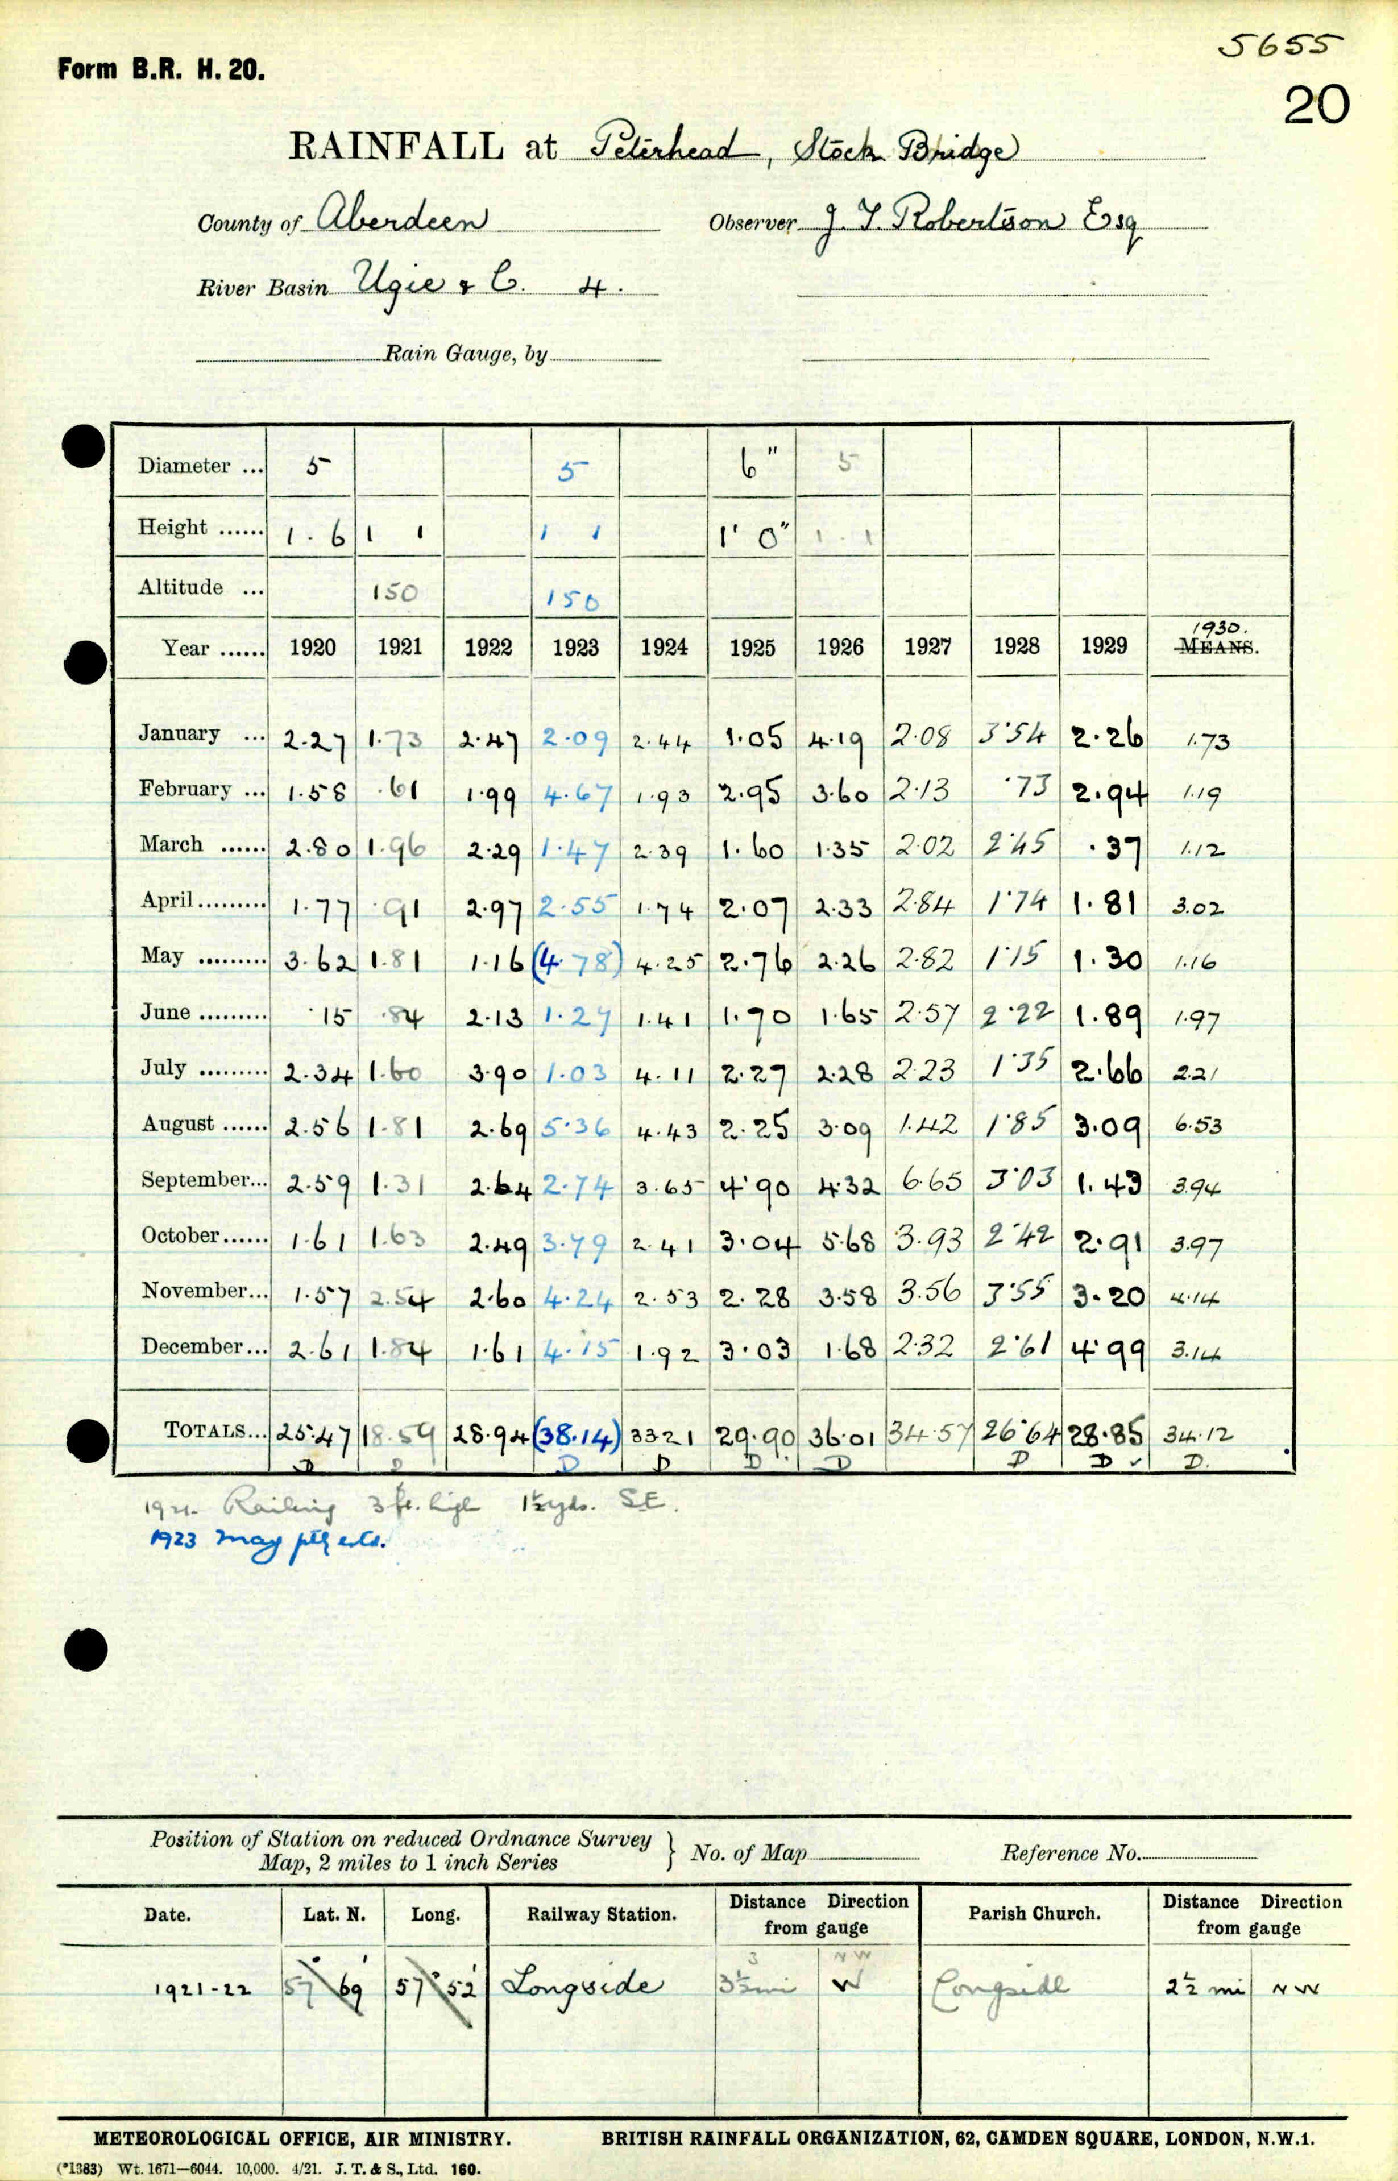 5655
Form B.R. H. 20.
20
RAINFALL at Peterhead, Stock Bridge
County of Aberdeen Observer J. T. Robertson Esq
River Basin Ugie & C. 4.
Rain Gauge, by
Diameter ... 5 5 6" 5
Height ...... 1 . 6 1 1 1 1 1' 0" 1 . 1
Altitude ... 150 150
1930.
Year ...... 1920 1921 1922 1923 1924 1925 1926 1927 1928 1929 MEANS.
January ... 2.27 1.73 2.47 2.09 2.44 1.05 4.19 2.08 3.54 2.26 1.73
February ... 1.58 .61 1.99 4.67 1.93 2.95 3.60 2.13 .73 2.94 1.19
March ...... 2.80 1.96 2.29 1.47 2.39 1.60 1.35 2.02 2.45 .37 1.12
April......... 1.77 .91 2.97 2.55 1.74 2.07 2.33 2.84 1.74 1.81 3.02
May ......... 3.62 1.81 1.16 (4.78) 4.25 2.76 2.26 2.82 1.15 1.30 1.16
June ......... .15 .84 2.13 1.27 1.41 1.70 1.65 2.57 2.22 1.89 1.97
July ......... 2.34 1.60 3.90 1.03 4.11 2.27 2.28 2.23 1.35 2.66 2.21
August ...... 2.56 1.81 2.69 5.36 4.43 2.25 3.09 1.42 1.85 3.09 6.53
September... 2.59 1.31 2.64 2.74 3.65 4.90 4.32 6.65 3.03 1.43 3.94
October...... 1.61 1.63 2.49 3.79 2.41 3.04 5.68 3.93 2.42 2.91 3.97
November... 1.57 2.54 2.60 4.24 2.53 2.28 3.58 3.56 3.55 3.20 4.14
December... 2.61 1.84 1.61 4.15 1.92 3.03 1.68 2.32 2.61 4.99 3.14
TOTALS... 25.47 18.59 28.94 (38.14) 33.21 29.90 36.01 34.57 26.64 28.85 34.12
D D D D D D D D ✓ D.
1921. Railing 3 ft. high 1½ yds. S.E.
1923 May ptly estd.
Position of Station on reduced Ordnance Survey
Map, 2 miles to 1 inch Series } No. of Map Reference No.
Date. Lat. N. Long. Railway Station. Distance Direction from gauge Parish Church. Distance Direction from gauge
3 NW
1921-22 57° 69' 57° 52' Longside 3½ mi W Longside 2½ mi NW
METEOROLOGICAL OFFICE, AIR MINISTRY. BRITISH RAINFALL ORGANIZATION, 62, CAMDEN SQUARE, LONDON, N.W.1.
(*1383) Wt. 1671—6044. 10,000. 4/21. J. T. & S., Ltd. 160.